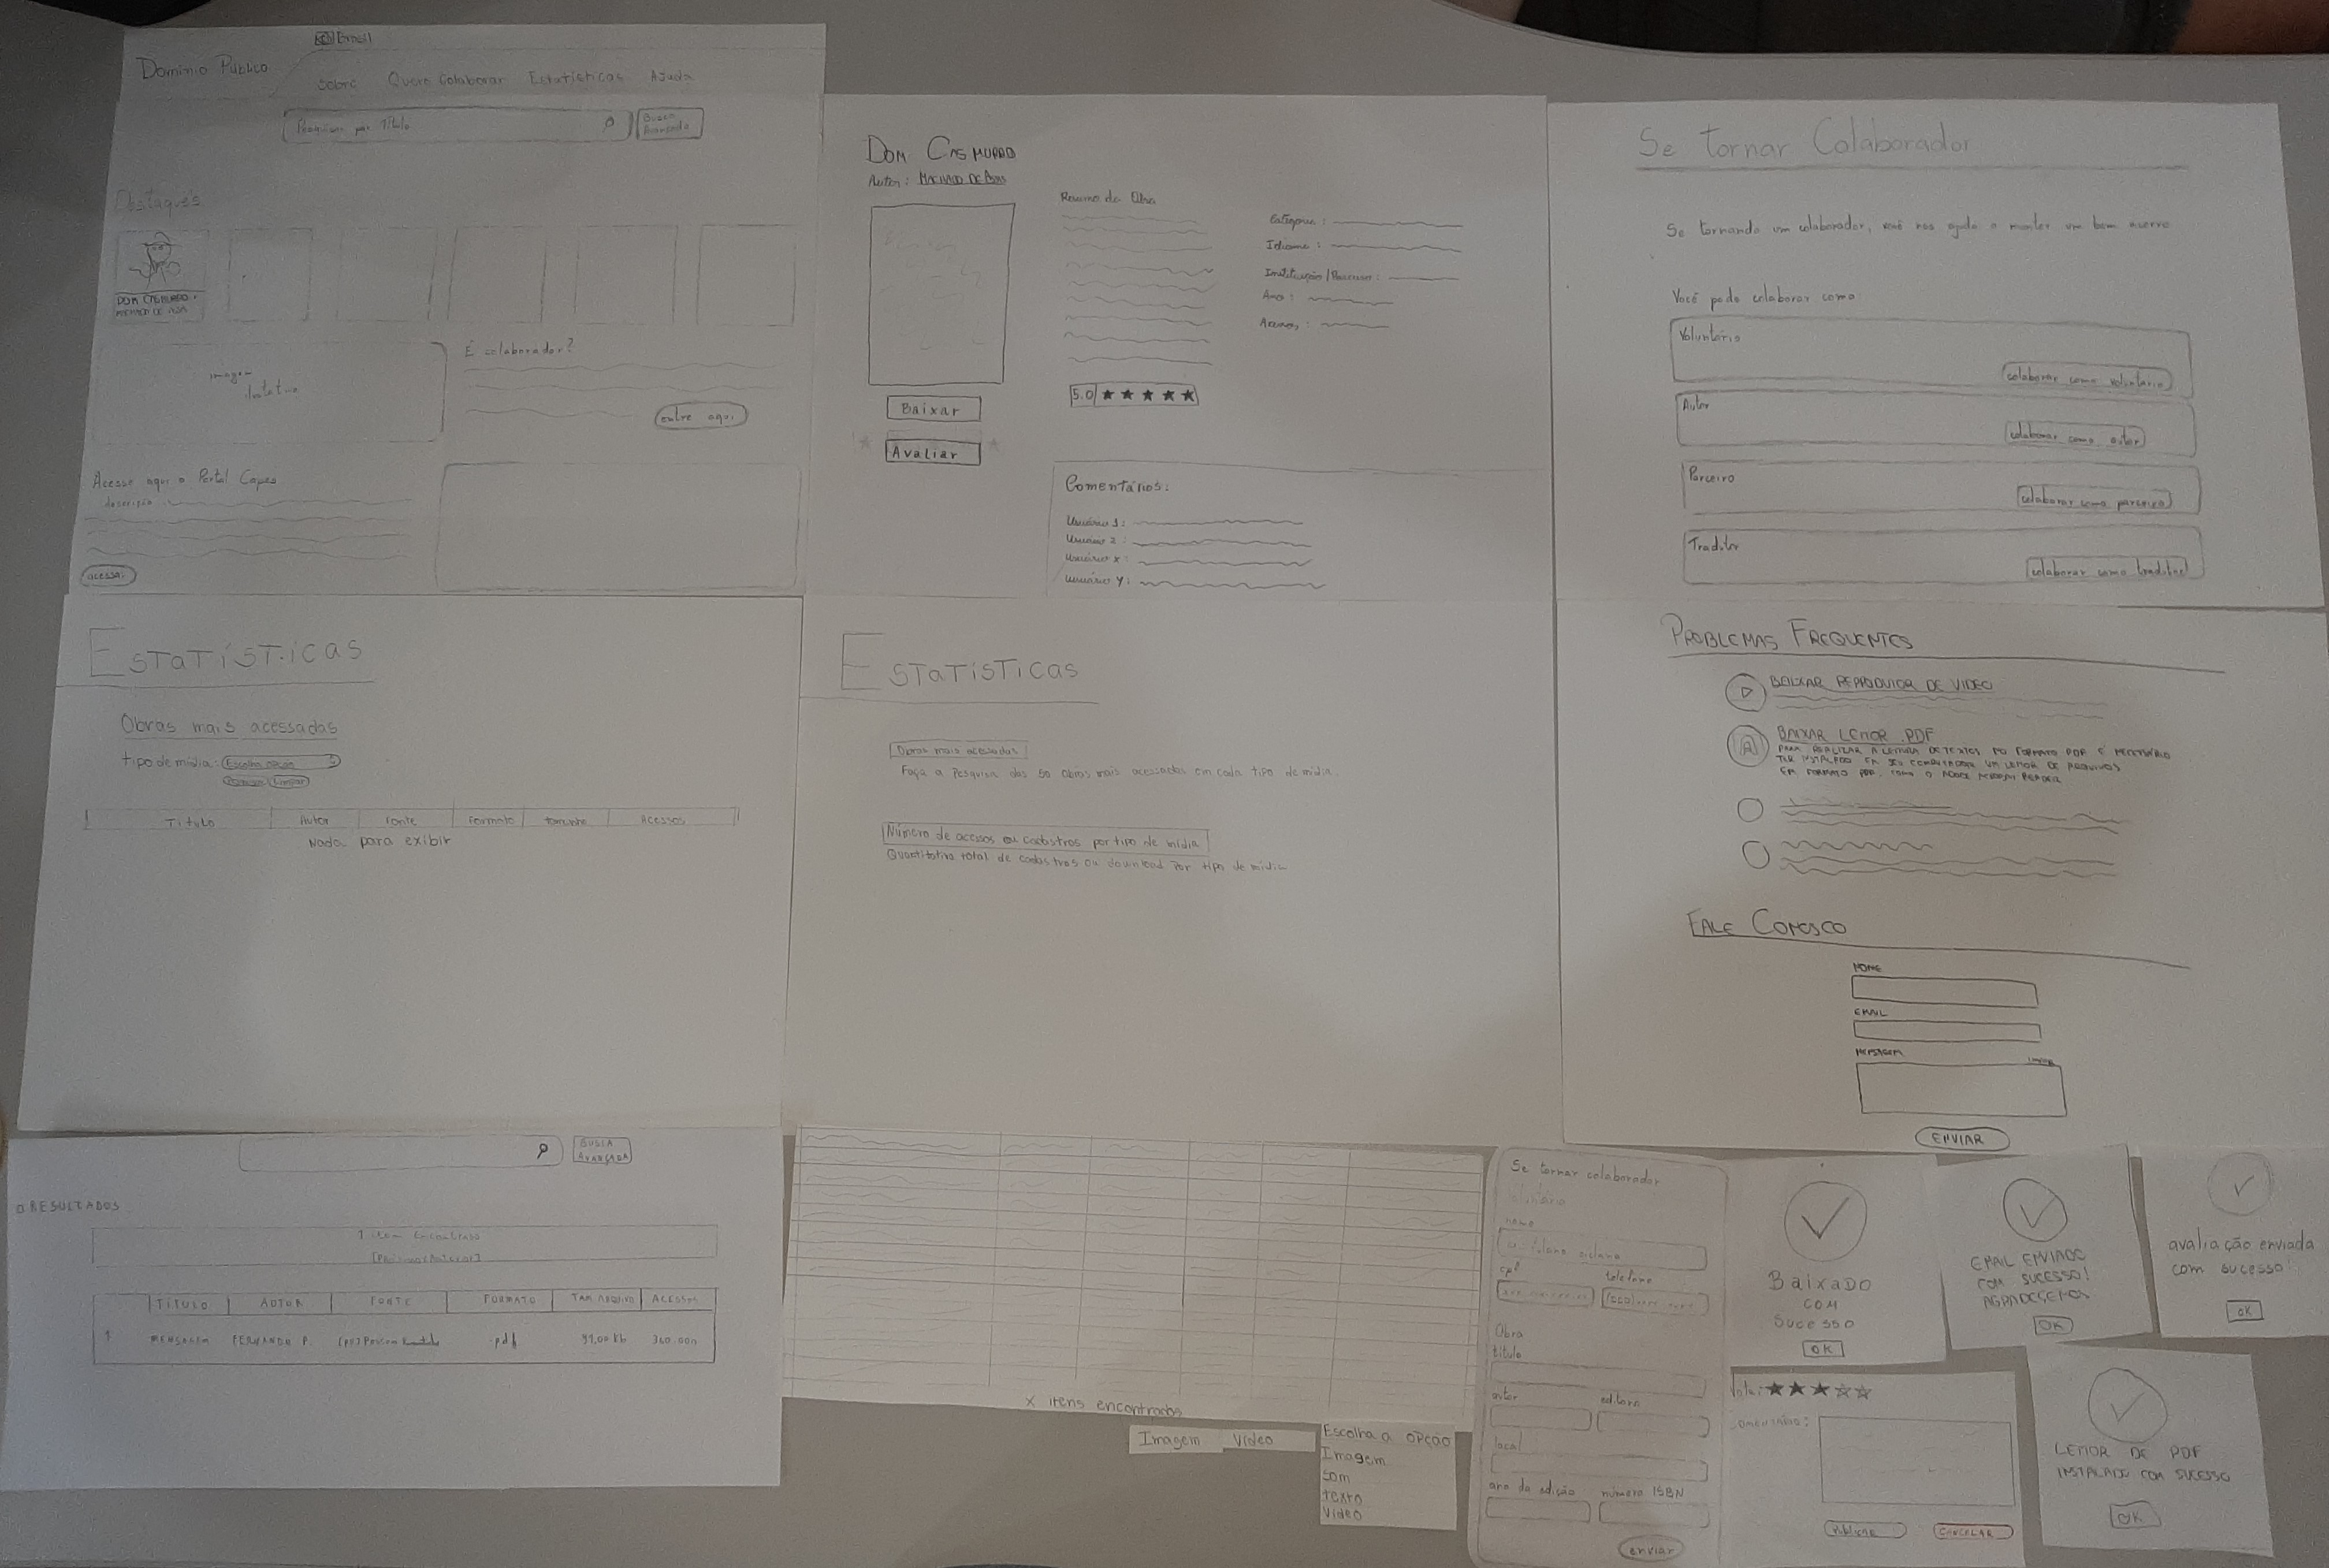 Domínio Público
Email
Sobre Quero Colaborar Estatísticas Ajuda
Pesquisar por Título
Busca Avançada
Destaques
DOM CASMURRO
MACHADO DE
imagem
É colaborador?
entre aqui
Acesse aqui o Portal Capes
descrição
acessar
DOM CASMURRO
Autor: MACHADO DE ASSIS
Resumo da Obra
Categoria:
Idioma:
Instituição/Parceiro:
Ano:
Acessos:
5.0 ★ ★ ★ ★ ★
Baixar
Avaliar
Comentários:
Usuário 1:
Usuário 2:
Usuário X:
Usuário Y:
Se tornar Colaborador
Se tornando um colaborador, você nos ajuda a manter um bom acervo
Você pode colaborar como
Voluntário
colaborar como voluntário
Autor
colaborar como autor
Parceiro
colaborar como parceiro
Traditor
colaborar como
ESTaTíSTicas
Obras mais acessadas
tipo de mídia: Escolha opção
Limpar
Título Autor Fonte Formato tamanho Acessos
Nada para exibir
ESTaTísTicas
Obras mais acessadas
Faça a Pesquisa das 50 obras mais acessadas em cada tipo de mídia.
Número de acessos ou cadastros por tipo de mídia
Quantitativo total de cadastros ou download Por tipo de mídia
PROBLEMAS FREQUENTES
BAIXAR REPRODUTOR DE VIDEO
BAIXAR LEITOR .PDF
PARA REALIZAR A LEITURA DE TEXTOS NO FORMATO PDF É NECESSÁRIO
TER INSTALADO EM SEU COMPUTADOR UM LEITOR DE ARQUIVOS
EM FORMATO PDF, COMO O ADOBE ACROBAT READER
FALE CONOSCO
NOME
EMAIL
MENSAGEM
ENVIAR
BUSCA AVANÇADA
RESULTADOS
1 item Encontrado
[Próximo/Anterior]
TÍTULO AUTOR FONTE FORMATO TAM ARQUIVO ACESSOS
1 MENSAGEM FERNANDO P. .pdf
X itens encontrados
Imagem Vídeo
Escolha a OPÇÃO
Imagem
som
texto
vídeo
Se tornar colaborador
Voluntário
nome
cpf telefone
Obra
título
autor editora
local
ano da edição número ISBN
enviar
BaixaDO
COM
Sucesso
OK
EMAIL ENVIADO
COM SUCESSO!
AGRADECEMOS
OK
avaliação enviada
com sucesso!
OK
Nota: ★ ★ ★ ☆ ☆
Comentário:
PUBLICAR CANCELAR
LEITOR DE PDF
INSTALADO COM SUCESSO
OK